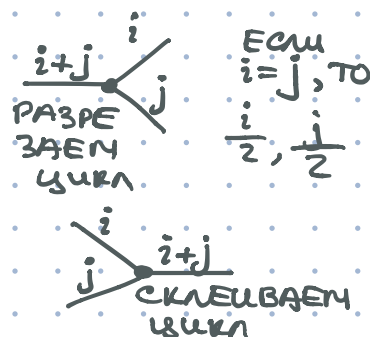 i
i+j
j
РАЗРЕ
ЗАЕМ
ЦИКЛ
ЕСЛИ
i=j, ТО
i/2, i/2
i
j
i+j
СКЛЕИВАЕМ
ЦИКЛ